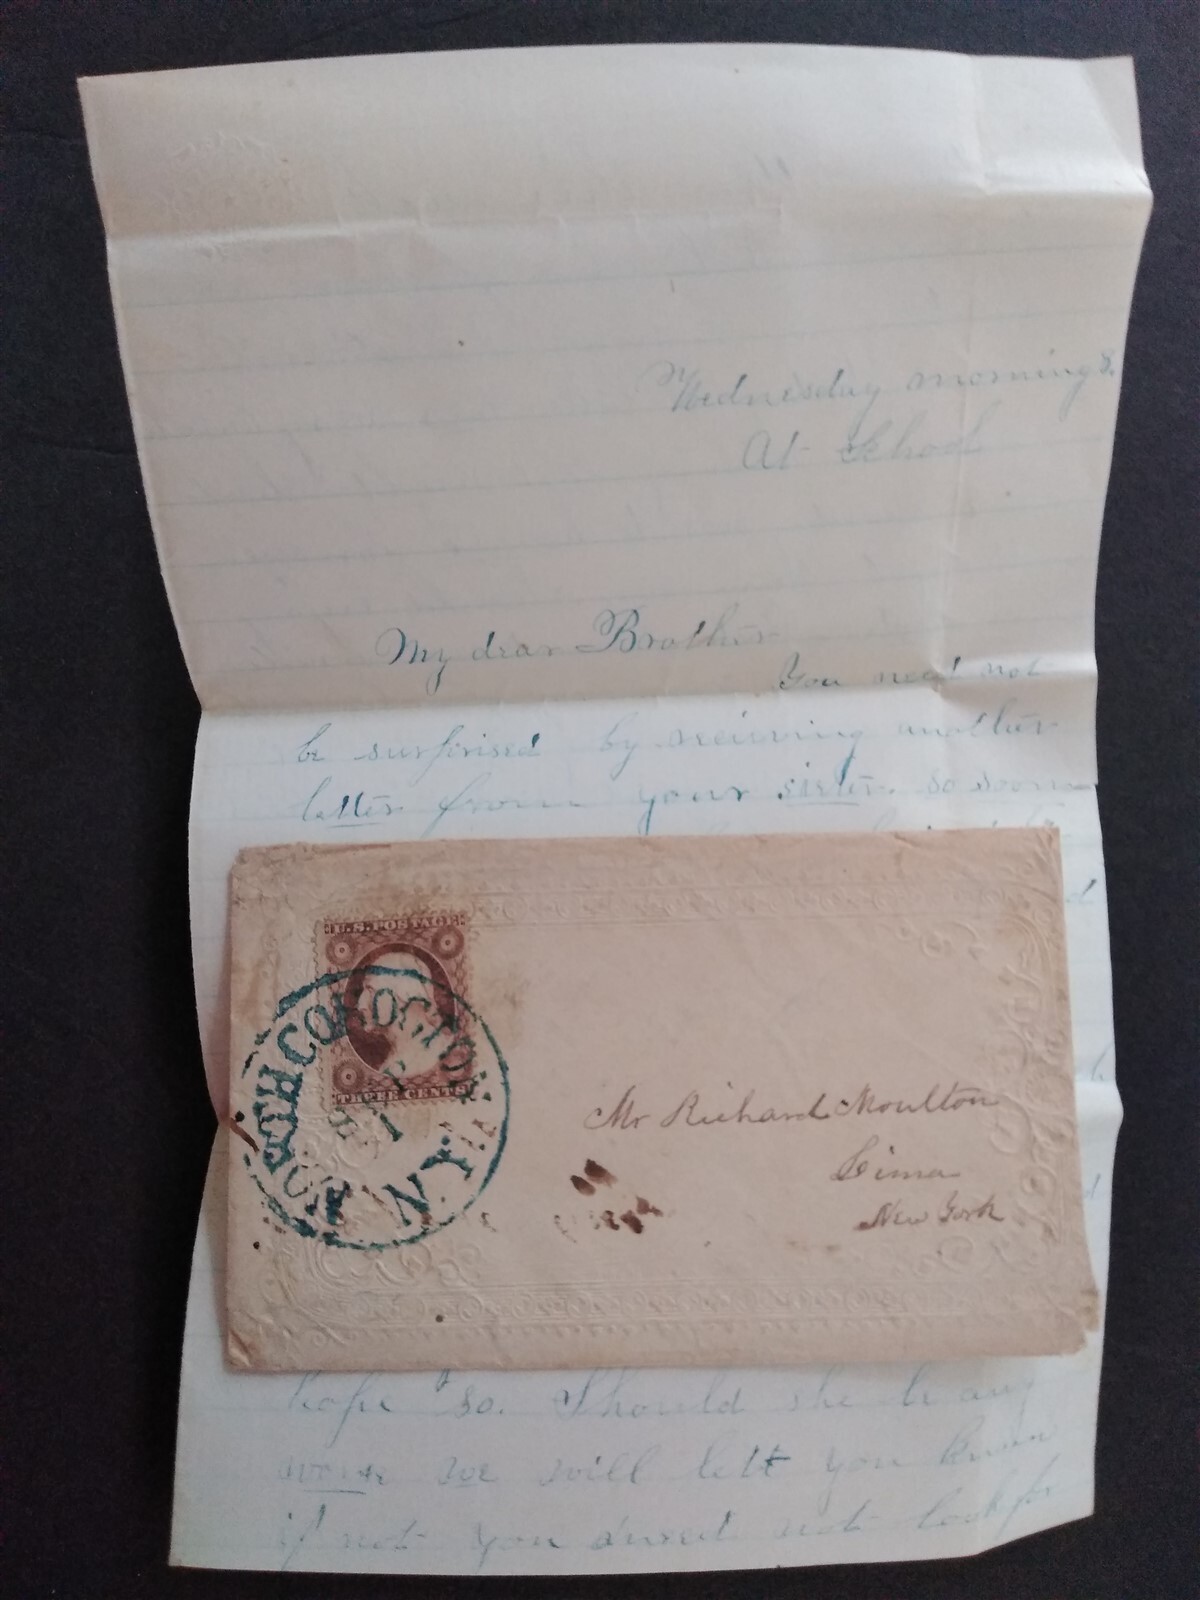 Wednesday morning 8.
At School
My dear Brother
You need not
be surprised by receiving another
letter from your sister. so soon
U.S. POSTAGE
THREE CENTS
NORTH COHOCTON
N.Y.
SEP
1
Mr Richard Moulton
Lima
New York
hope so. Should she be any
worse we will lett you know
if not you kneed not look for